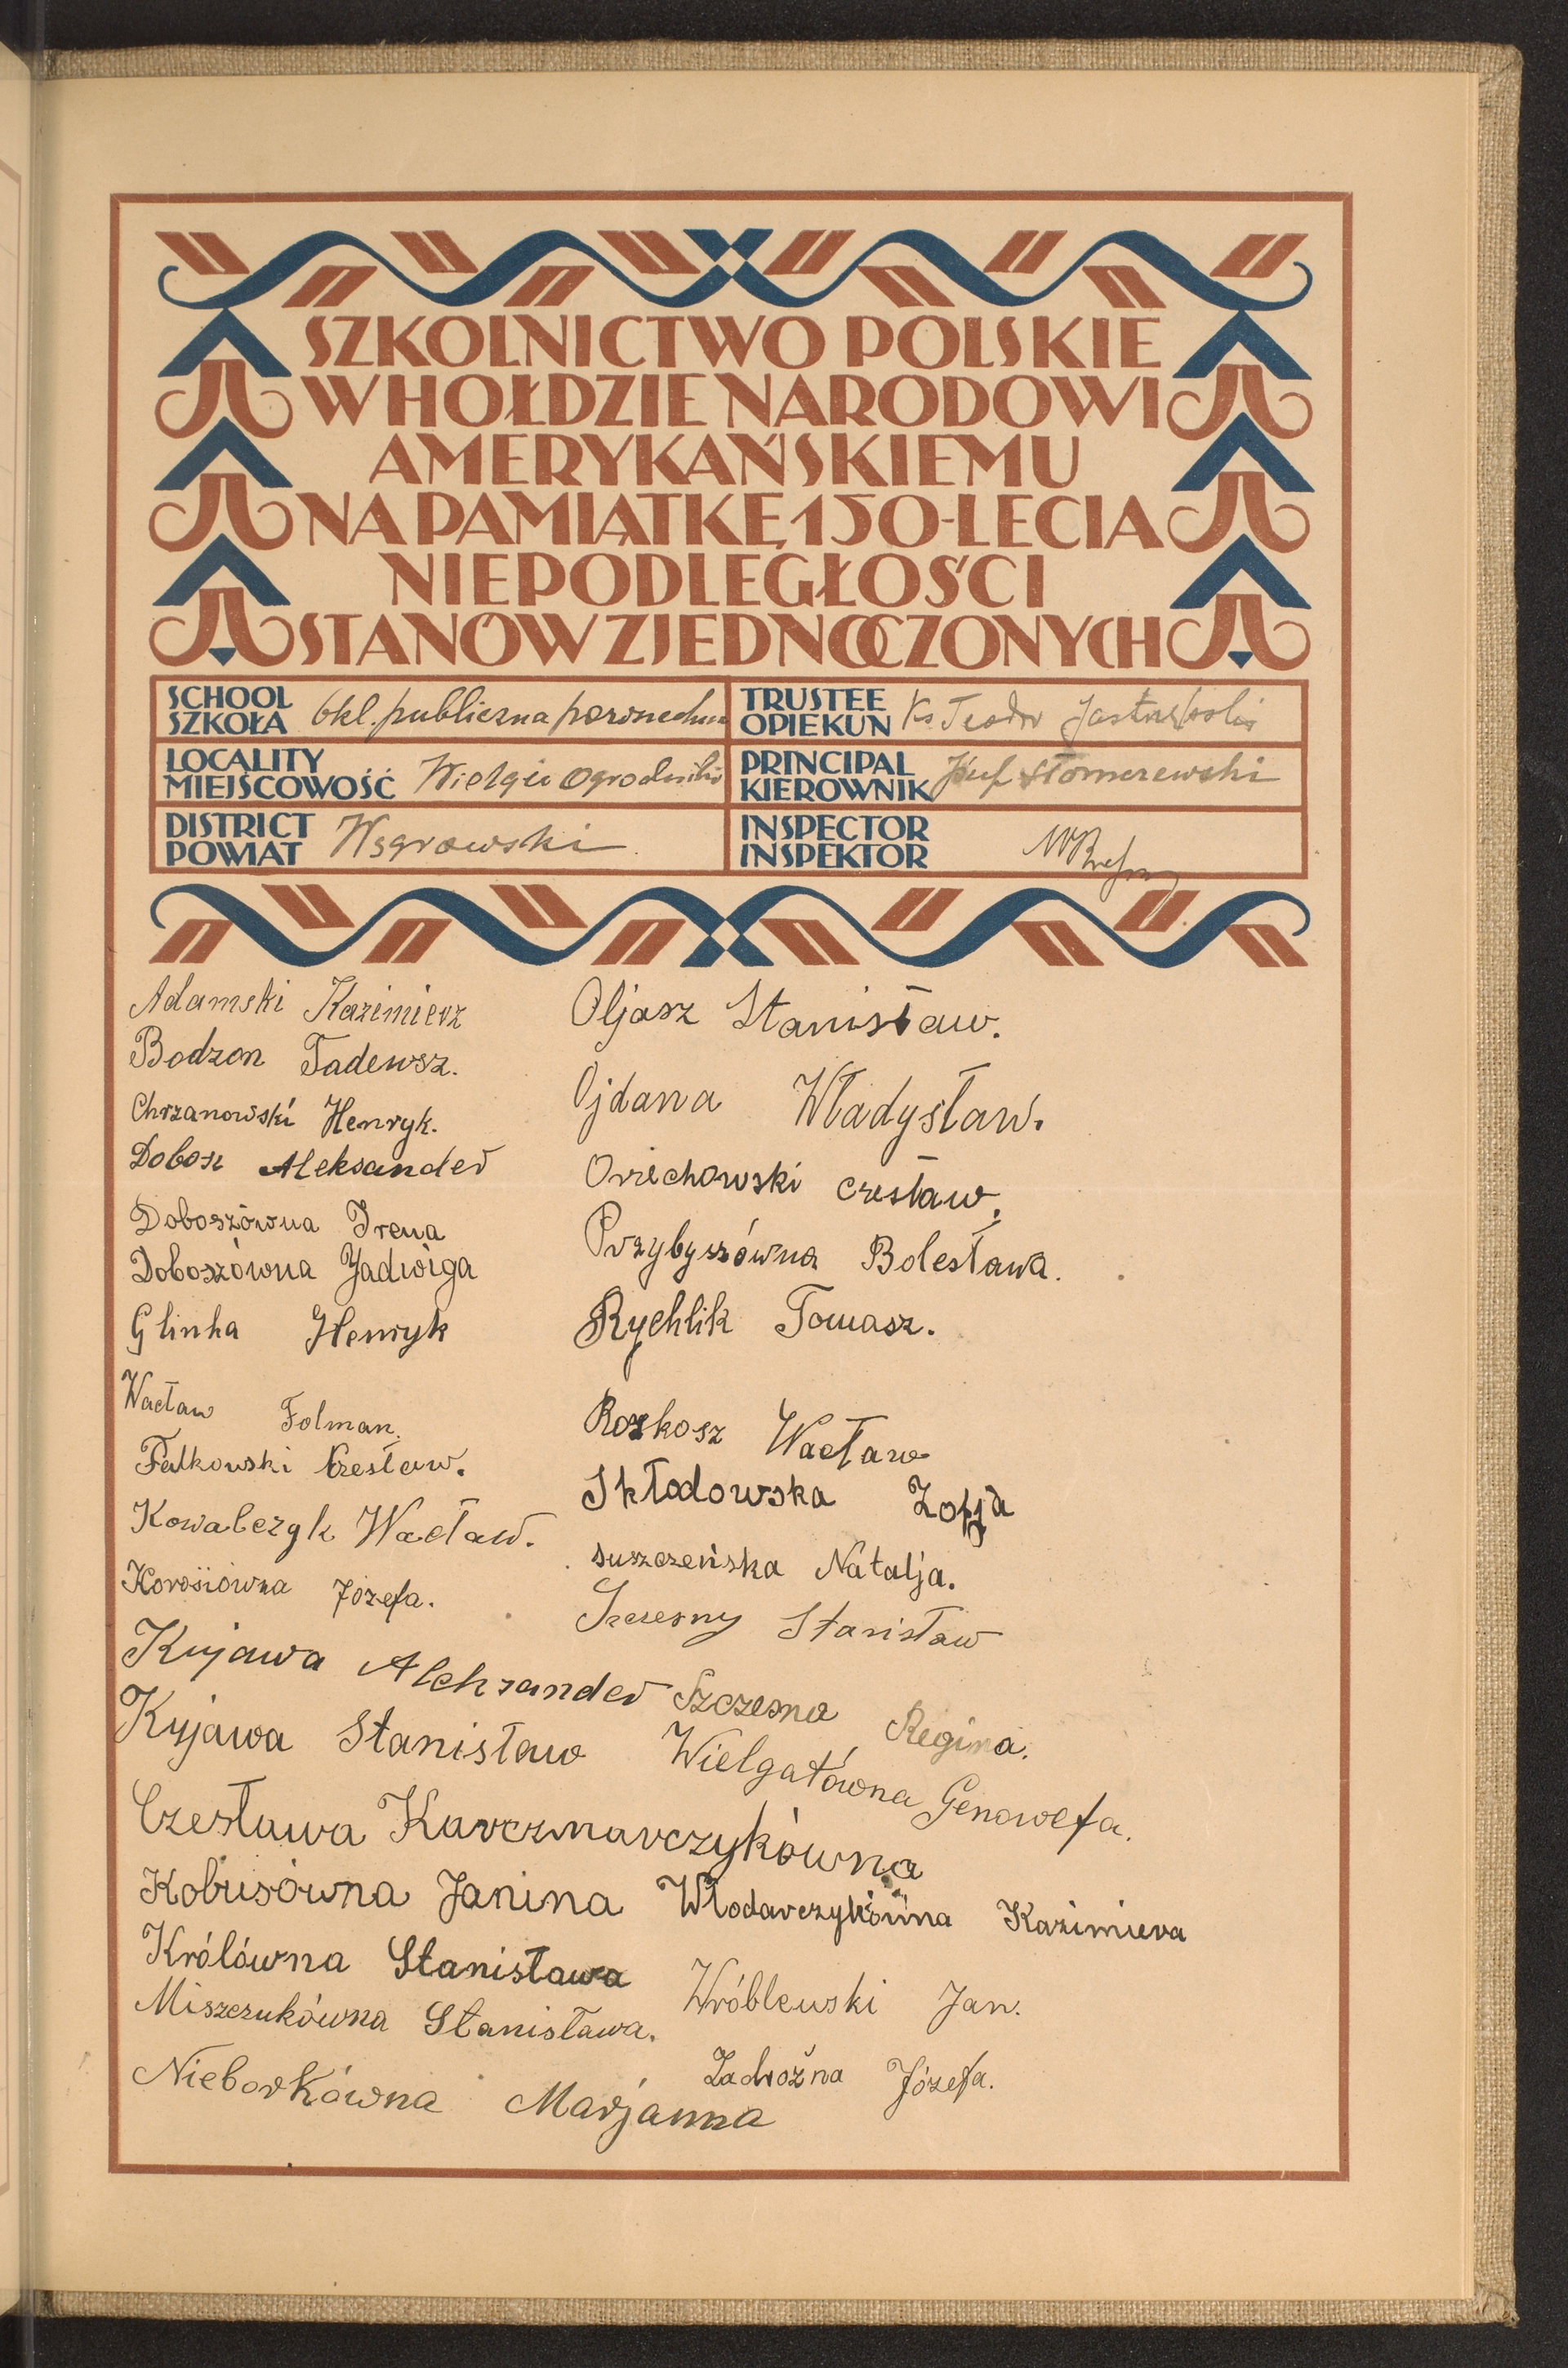 SZKOLNICTWO POLSKIE
W HOŁDZIE NARODOWI
AMERYKAŃSKIEMU
NA PAMIĄTKĘ 150-LECIA
NIEPODLEGŁOŚCI
STANÓW ZJEDNOCZONYCH
SCHOOL
SZKOŁA 6kl. publiczna powszechna
TRUSTEE
OPIEKUN Ks Teodor
LOCALITY
MIEJSCOWOŚĆ Ogrodniki
PRINCIPAL
KIEROWNIK Józef Słomczewski
DISTRICT
POWIAT Węgrowski
INSPECTOR
INSPEKTOR
Adamski Kazimierz
Bodzon Tadewsz.
Chrzanowski Henryk.
Dobosz Aleksander
Doboszówna Irena
Doboszówna Jadwiga
Glinka Henryk
Wacław Folman.
Falkowski Czesław.
Kowalczyk Wacław.
Józefa.
Kujawa Aleksander
Kujawa Stanisław
Czesława Karczmarczykówna
Kobusówna Janina
Królówna Stanisława
Miszczukówna Stanisława.
Nieborkówna Marjanna
Oljasz Stanisław.
Ojdana Władysław.
Orzechowski Czesław.
Przybyszówna Bolesława.
Rychlik Tomasz.
Rozkosz Wacław
Skłodowska Zofja
Suszczeńska Natalja.
Szczesny Stanisław
Szczesna Regina.
Wielgatówna Genowefa.
Włodarczykówna Kazimiera
Wróblewski Jan.
Zadrożna Józefa.